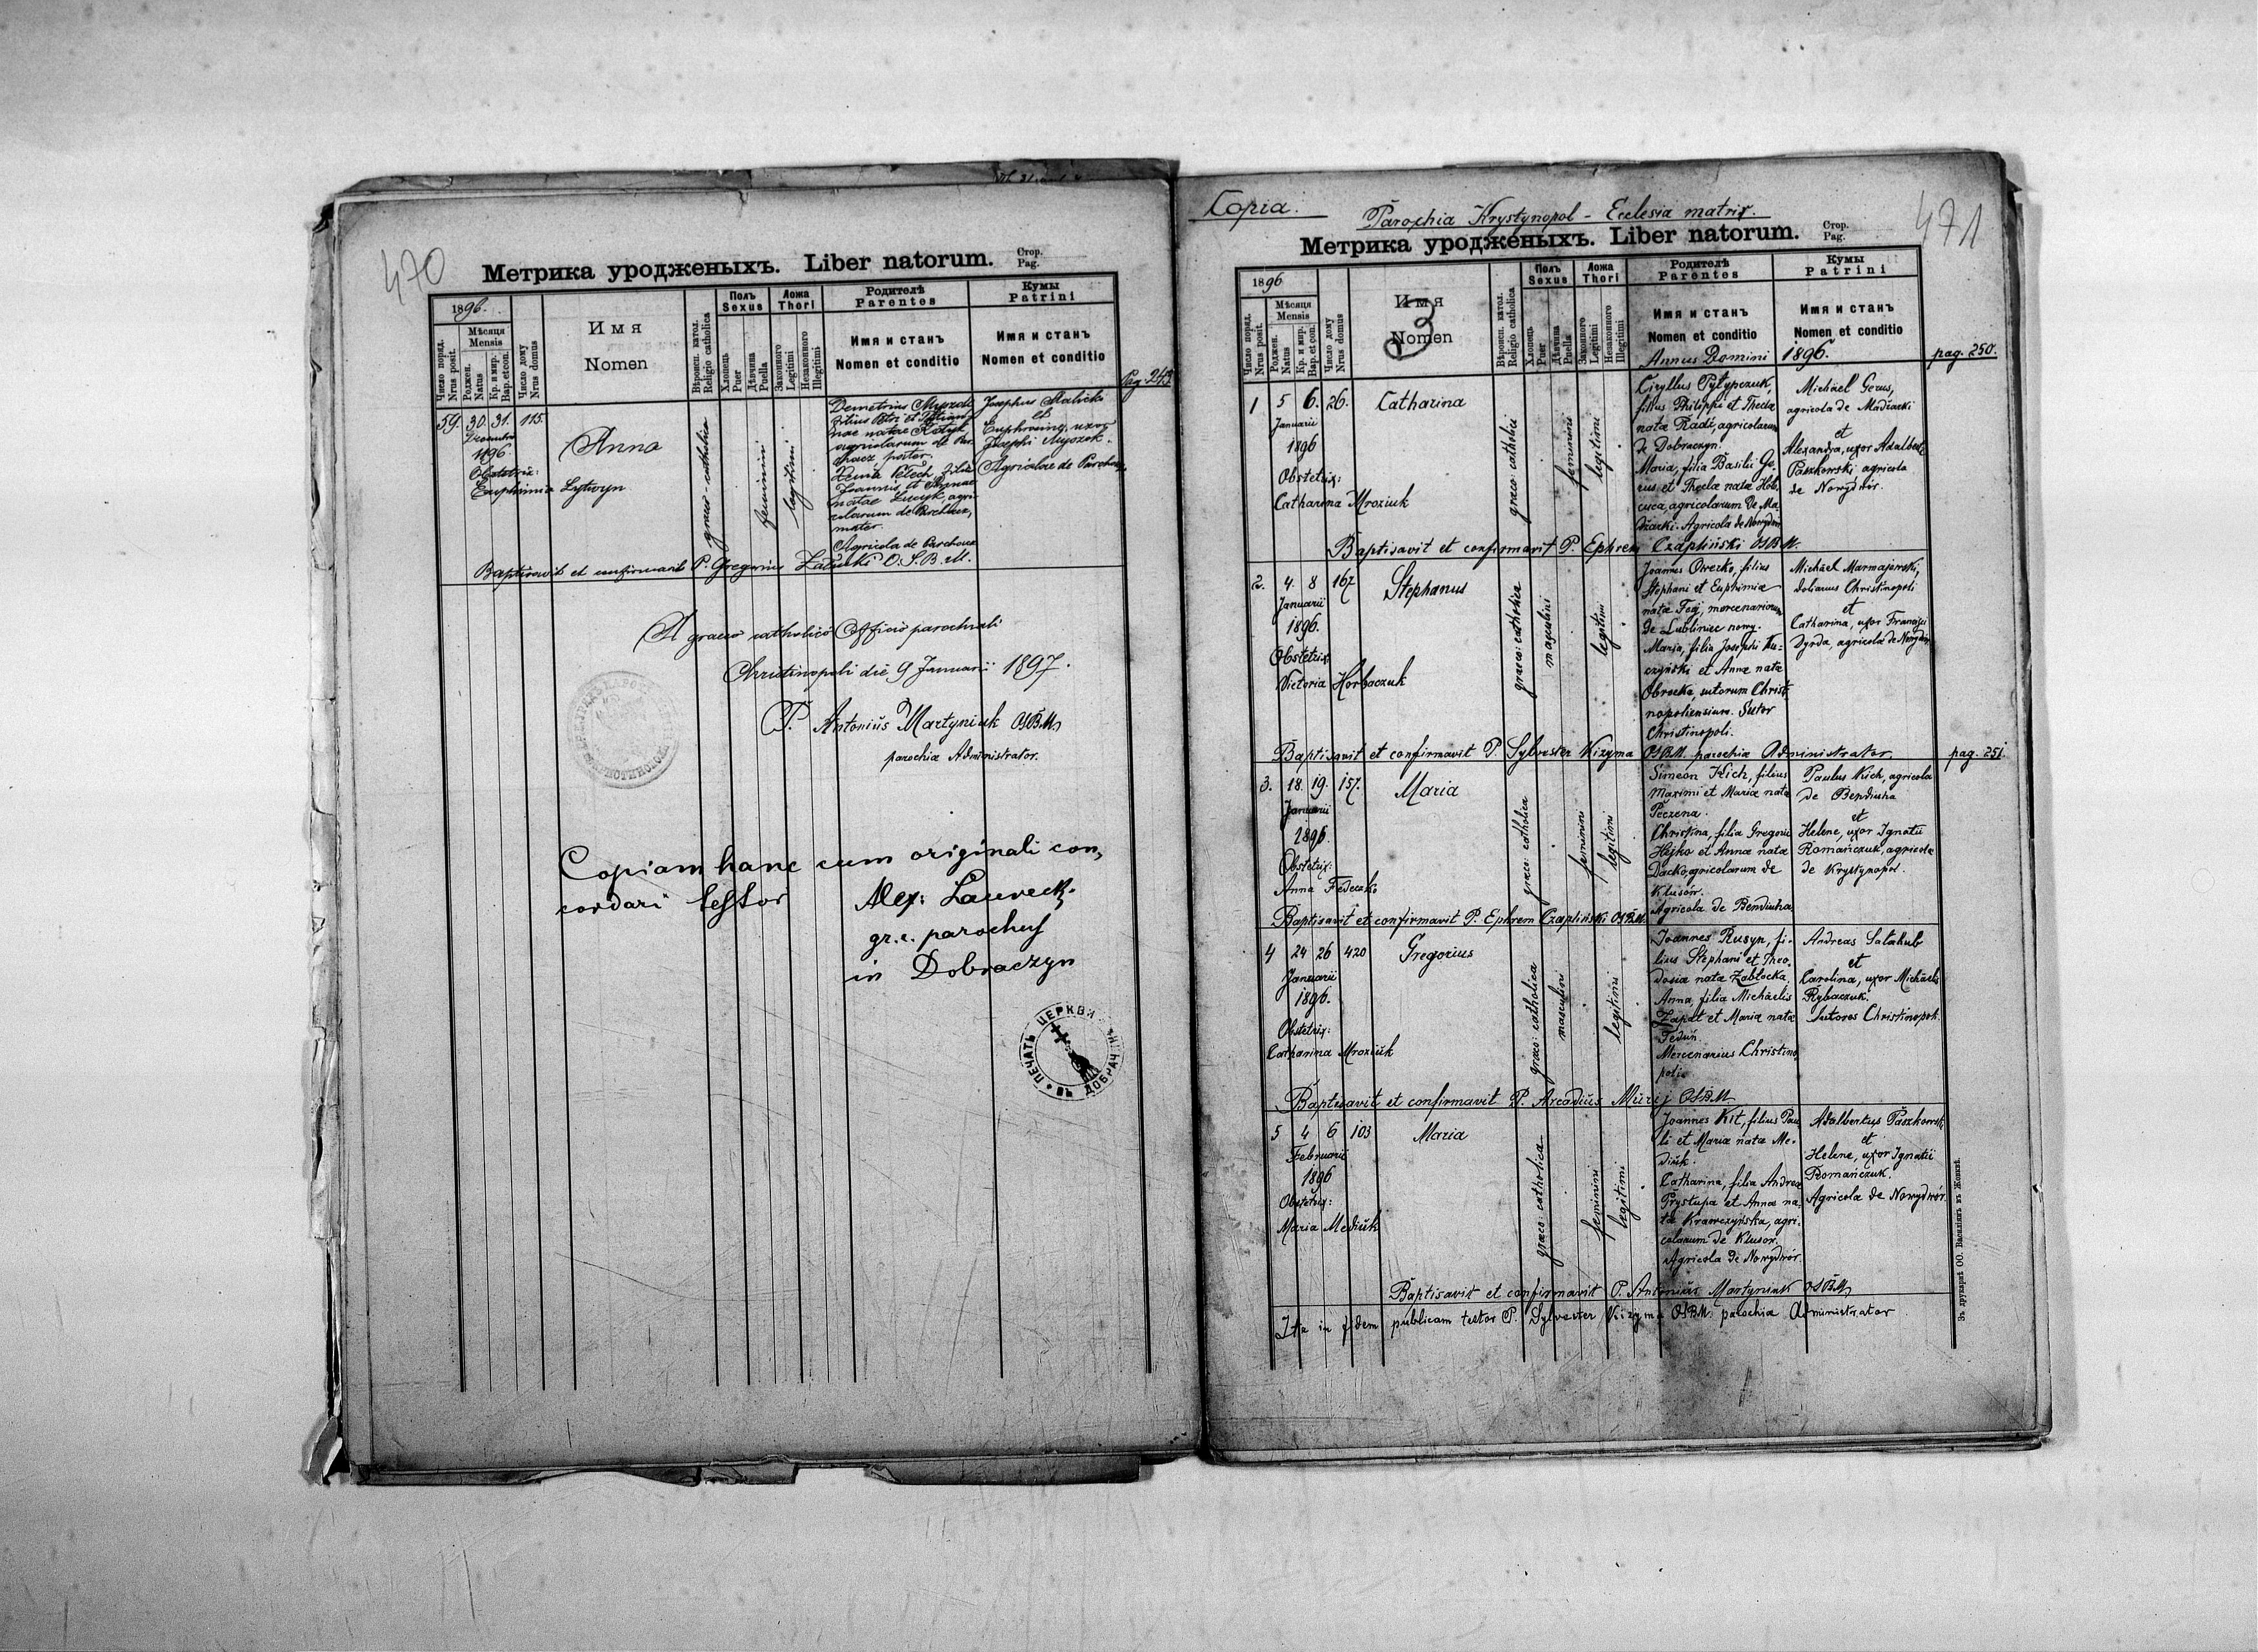 470
Метрика уродженыхъ. Liber natorum.
Стор.
Pag.
1896.
Число поряд.
Nrus posit.
Мѣсяця
Mensis
Роджен.
Natus
Кр. и мир.
Bap. et con.
Число дому
Nrus domus
Имя
Nomen
Вѣроисп. катол.
Religio catholica
Полъ
Sexus
Хлопець
Puer
Дѣвчина
Puella
Ложа
Thori
Законного
Legitimi
Незаконного
Illegitimi
Родителѣ
Parentes
Имя и станъ
Nomen et conditio
Кумы
Patrini
Имя и станъ
Nomen et conditio
Pag. 249
59. 30. 31. 115.
Decembris
1896
Obstetrix:
Euphimia Lytwyn
Anna
graeco-catholica
feminini
legitimi
Demetrius
filius Petri et
nae natae
agricolarum de Par
chacz pater.
Xenia Petech, filia
Joannis et Annae
natae Lucyk, agri
colarum de Parchacz,
mater.
Agricola de Parchacz
Josephus Stalicki
et
Euphrosina, uxor
Josephi
Agricolae de Parchacz
Baptisavit et confirmavit P. Gregorius O. S. B. M.
A graeco catholico Officio parochiali
Christinopoli die 9 Januarii 1897.
P. Antonius Martyniuk OSBM
parochiae Administrator.
Copiam hanc cum originali con,
cordari testor
Alex: Laureck.
gr. c. parochus
in Dobraczyn
ПЕЧАТЬ ЦЕРКВИ ВЪ ДОБРАЧИН
Copia.
Parochia Krystynopol - Ecclesia matrix.
471
Метрика уродженыхъ. Liber natorum.
Стор.
Pag.
1896
Число поряд.
Nrus posit.
Мѣсяця
Mensis
Роджен.
Natus
Кр. и мир.
Bap. et con.
Число дому
Nrus domus
Имя
Nomen
3
Вѣроисп. катол.
Religio catholica
Полъ
Sexus
Хлопець
Puer
Дѣвчина
Puella
Ложа
Thori
Законного
Legitimi
Незаконного
Illegitimi
Родителѣ
Parentes
Имя и станъ
Nomen et conditio
Кумы
Patrini
Имя и станъ
Nomen et conditio
Annus Domini 1896.
pag. 250.
1 5 6. 26. Catharina
Januarii
1896
Obstetrix:
Catharina Mroziuk
graeco: catholici
feminini
legitimi
Ciryllus Pylypczuk,
filius Philippi et Theclae
nata Radi, agricolarum
de Dobraczyn.
Maria, filia Basilii Ge,
rus et Thecla nata Hob,
cuca, agricolarum de Ma
dziarki. Agricola de Nowydwor
Michael Gerus,
agricola de Madiarki
et
Alexandra, uxor Adalberti
Paszkowski agricola
de Nowydwór.
Baptisavit et confirmavit P. Ephrem Czapliński OSBM.
2. 4. 8 167 Stephanus
Januarii
1896.
Obstetrix:
Victoria Horbaczuk
graeco: catholica
masculini
legitimi
Joannes Owerko, filius
Stephani et Euphimia
nata Fecj, mercenariorum
de Lubliniec nowy.
Maria, filia Josephi Ku-
czyński et Anna nata
Obrocka, sutorum Christi
nopoliensium. Sutor
Christinopoli.
Michael Marmajewski,
doliarius Christinopoli
et
Catharina, uxor Francisci
Dyrda, agricola de Nowydwór
Baptisavit et confirmavit P. Sylvester Kizyma OSBM. parochiae Administrator.
pag. 251.
3. 18. 19. 157. Maria
Januarii
1896.
Obstetrix:
Anna Fedeczko
graeco: catholica
feminini
legitimi
Simeon Kich, filius
Maximi et Maria nata
Peczena.
Christina, filia Gregorii
Hejko et Anna nata
Dacko, agricolarum de
Klusów.
Agricola de Bendiuha
Paulus Kich, agricola
de Bendiuha
et
Helene, uxor Ignatii
Romańczuk, agricola
de Krystynopol.
Baptisavit et confirmavit P. Ephrem Czapliński OSBM.
4 24 26 420 Gregorius
Januarii
1896.
Obstetrix:
Catharina Mroziuk
graeco: catholica
masculini
legitimi
Joannes Rusyn, fi-
lius Stephani et Theo,
dosia nata Zabłocka,
Anna, filia Michaelis
Zapat et Maria nata
Feduń.
Mercenarius Christino
poli.
Andreas Salahub
et
Carolina, uxor Michaelis
Rybaczuk.
Sutores Christinopoli.
Baptisavit et confirmavit P. Arcadius OSBM
5 4 6 103 Maria
Februarii
1896
Obstetrix:
Maria Mediuk
graeco: catholica
feminini
legitimi
Joannes Kit, filius Pau
li et Maria nata Me-
diuk.
Catharina, filia Andrea
Prystupa et Anna na,
ta Krawczyńska, agri,
colarum de Klusow.
Agricola de Nowydwór.
Adalbertus Paszkowski
et
Helene, uxor Ignatii
Romańczuk.
Agricola de Nowydwór.
Baptisavit et confirmavit P. Antonius Martyniuk OSBM
Ita in fidem publicam testor P. Sylvester Kizyma OSBM. parochiae Administrator
Зъ друкарнѣ ОО. Василіянъ въ Жовквѣ.